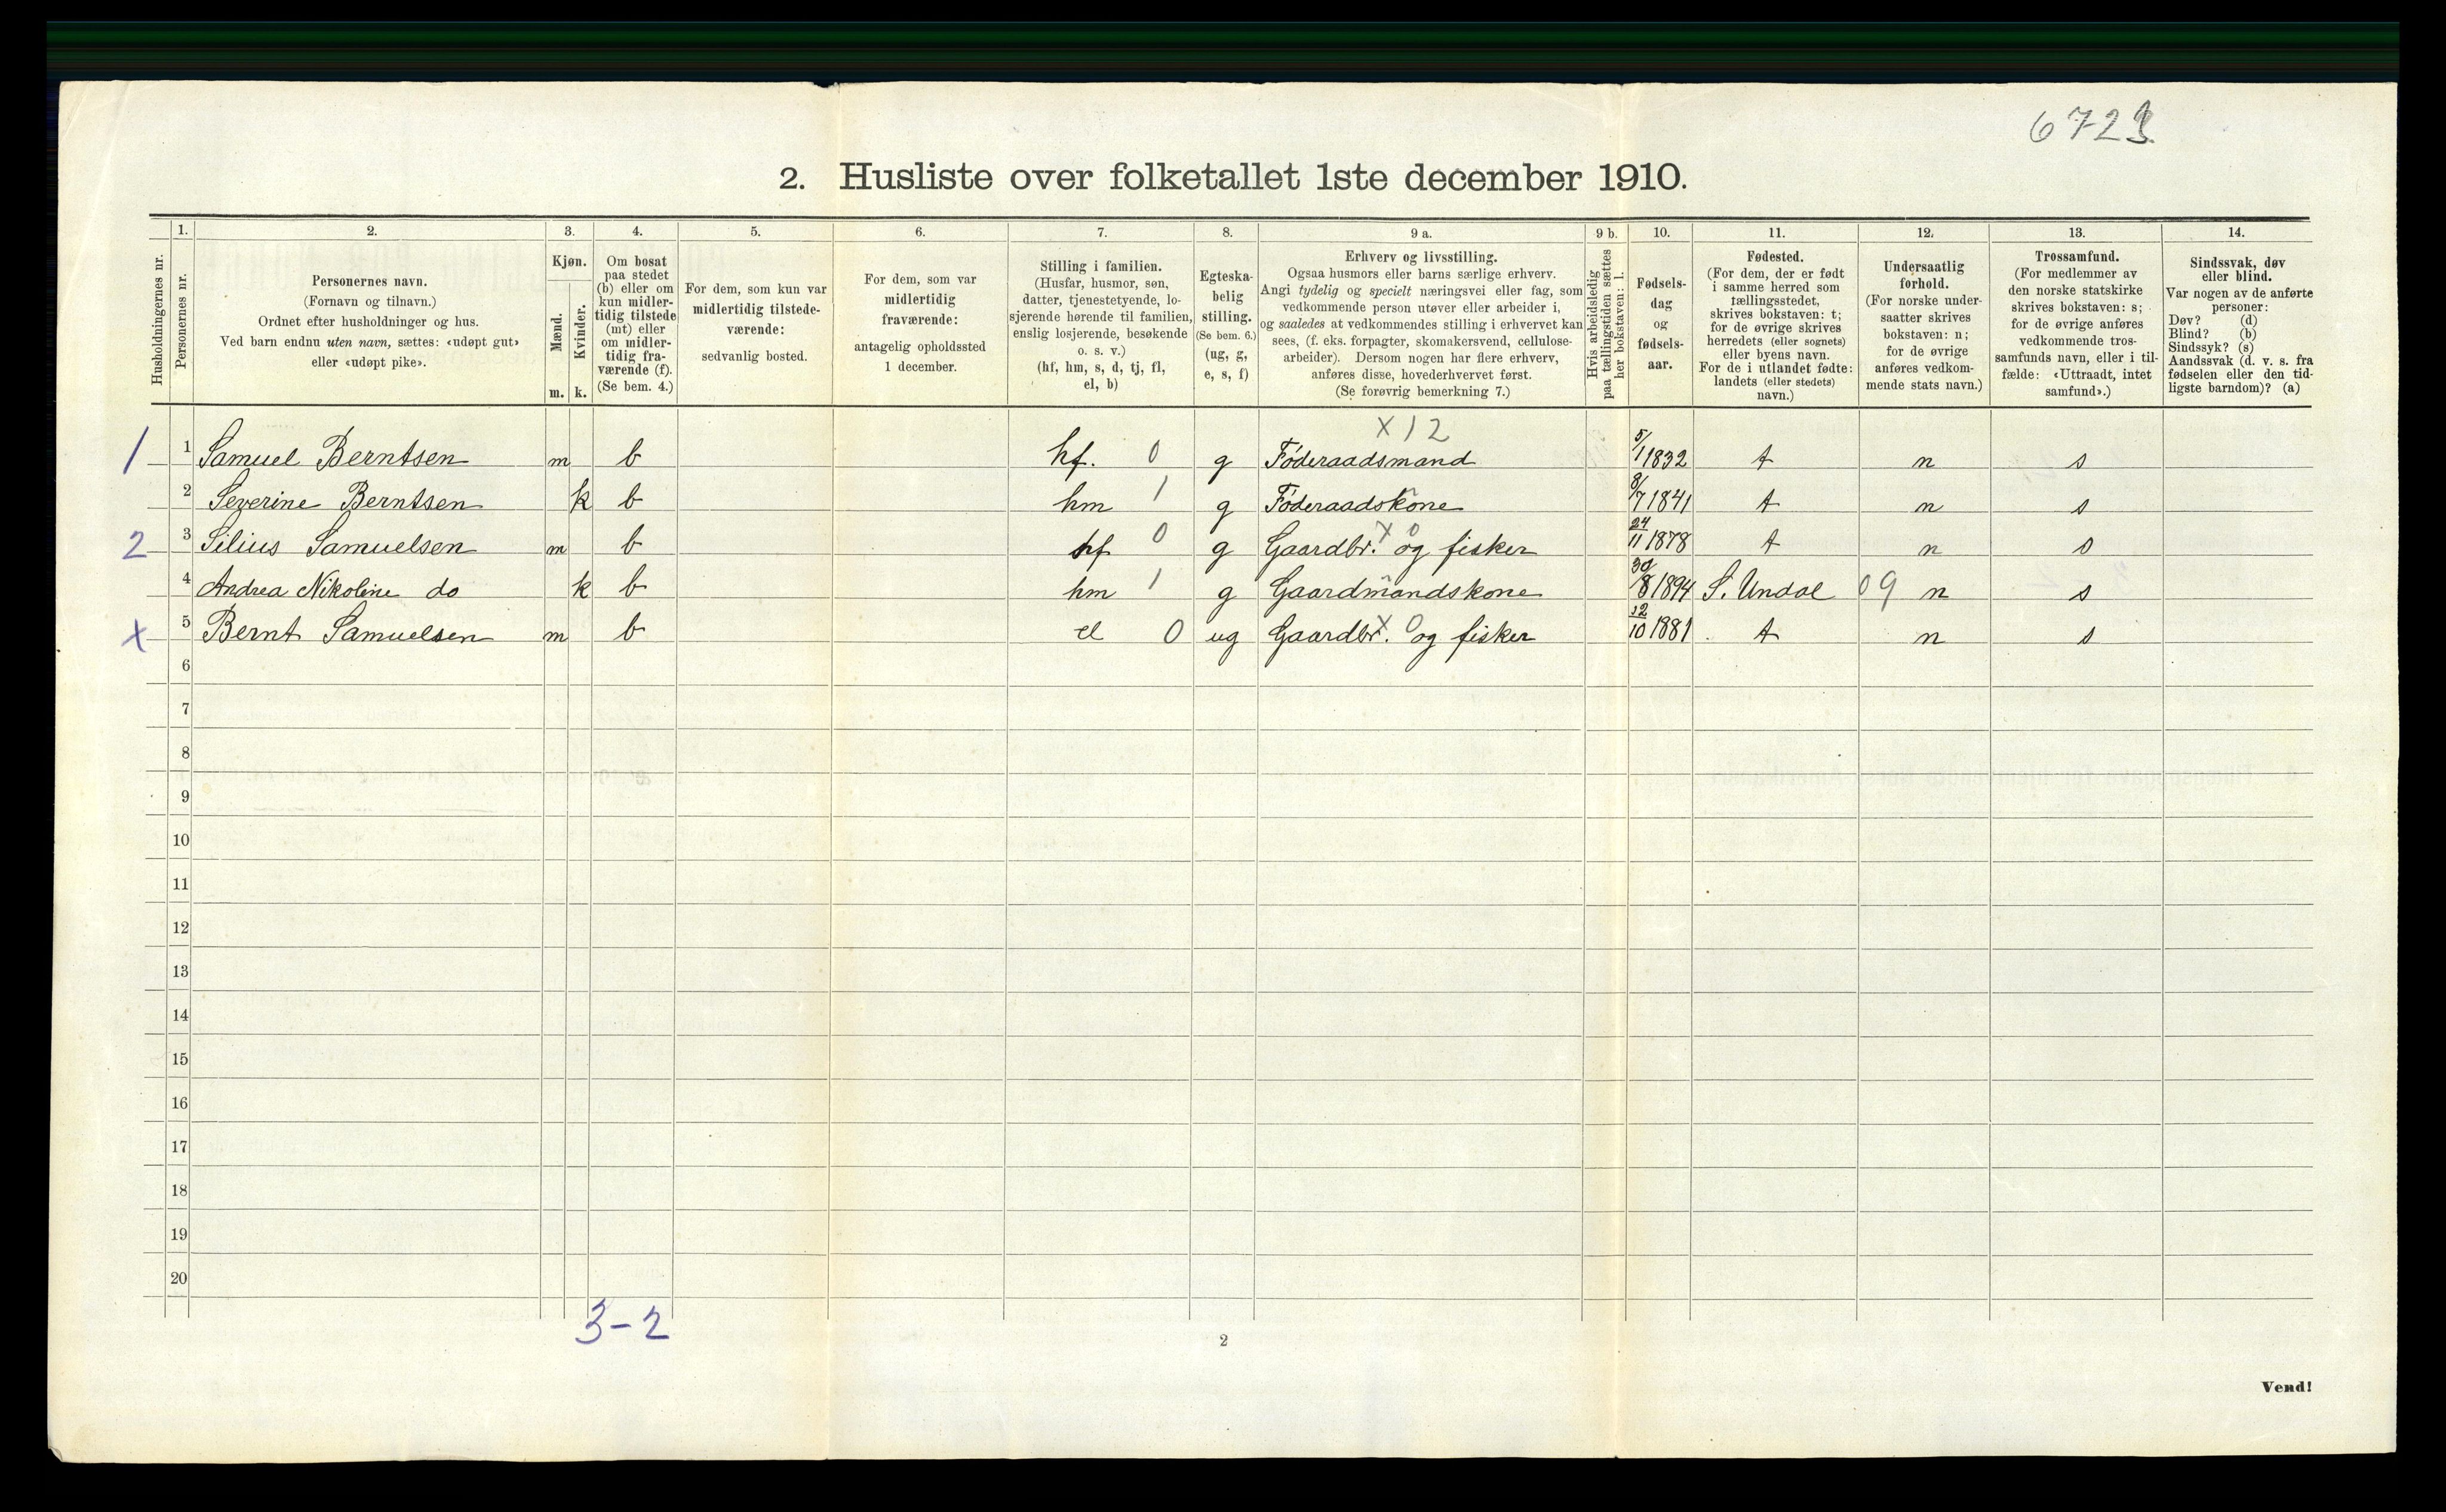 6723
2. Husliste over folketallet 1ste december 1910.
Husholdningernes nr.
1.
Personernes nr.
2.
Personernes navn.
(Fornavn og tilnavn.)
Ordnet efter husholdninger og hus.
Ved barn endnu uten navn, sættes: «udøpt gut»
eller «udøpt pike».
3.
Kjøn.
Mænd.
Kvinder.
m. k.
4.
Om bosat
paa stedet
(b) eller om
kun midler-
tidig tilstede
(mt) eller
om midler-
tidig fra-
værende (f).
(Se bem. 4.)
5.
For dem, som kun var
midlertidig tilstede-
værende:
sedvanlig bosted.
6.
For dem, som var
midlertidig
fraværende:
antagelig opholdssted
1 december.
7.
Stilling i familien.
(Husfar, husmor, søn,
datter, tjenestetyende, lo-
sjerende hørende til familien,
enslig losjerende, besøkende
o. s. v.)
(hf, hm, s, d, tj, fl,
el, b)
8.
Egteska-
belig
stilling.
(Se bem. 6.)
(ug, g,
e, s, f)
9 a.
Erhverv og livsstilling.
Ogsaa husmors eller barns særlige erhverv.
Angi tydelig og specielt næringsvei eller fag, som
vedkommende person utøver eller arbeider i,
og saaledes at vedkommendes stilling i erhvervet kan
sees, (f. eks. forpagter, skomakersvend, cellulose-
arbeider). Dersom nogen har flere erhverv,
anføres disse, hovederhvervet først.
(Se forøvrig bemerkning 7.)
9 b.
Hvis arbeidsledig
paa tællingstiden sættes
her bokstaven: l.
10.
Fødsels-
dag
og
fødsels-
aar.
11.
Fødested.
(For dem, der er født
i samme herred som
tællingsstedet,
skrives bokstaven: t;
for de øvrige skrives
herredets (eller sognets)
eller byens navn.
For de i utlandet fødte:
landets (eller stedets)
navn.)
12.
Undersaatlig
forhold.
(For norske under-
saatter skrives
bokstaven: n;
for de øvrige
anføres vedkom-
mende stats navn.)
13.
Trossamfund.
(For medlemmer av
den norske statskirke
skrives bokstaven: s;
for de øvrige anføres
vedkommende tros-
samfunds navn, eller i til-
fælde: «Uttraadt, intet
samfund».)
14.
Sindssvak, døv
eller blind.
Var nogen av de anførte
personer:
Døv? (d)
Blind? (b)
Sindssyk? (s)
Aandssvak (d. v. s. fra
fødselen eller den tid-
ligste barndom)? (a)
x 12
1 1 Samuel Berntsen m b hf. 0 g Föderaadsmand 5/1 1832 t n s
2 Severine Berntsen k b hm 1 g Föderaadskone 8/7 1841 t n s
2 3 Silius Samuelsen m b hf 0 g Gaardbr. x 0 og fisker 24/11 1878 t n s
4 Andrea Nikoline do k b hm 1 g Gaardmandskone 30/8 1894 S. Undal 09 n s
x 5 Bernt Samuelsen m b el 0 ug Gaardbr. x 0 og fisker 12/10 1881 t n s
6
7
8
9
10
11
12
13
14
15
16
17
18
19
20
3-2
2
Vend!